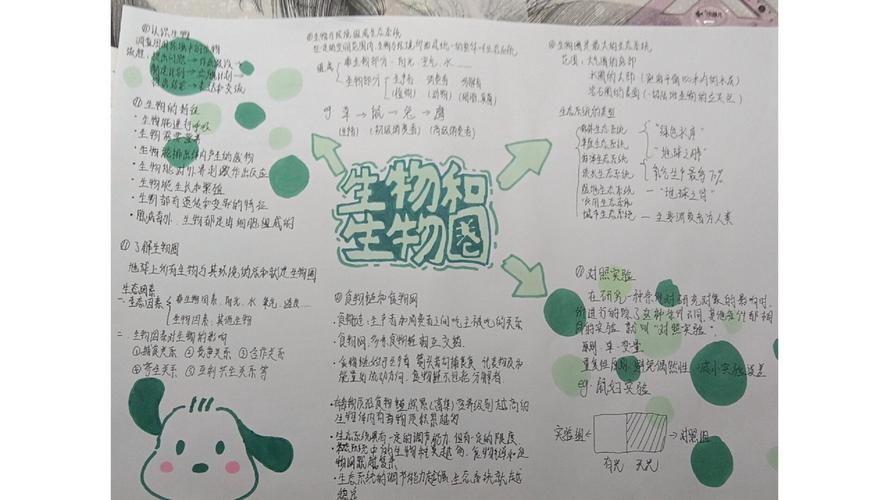 认识生物
调查周围环境中的生物
提出问题→作出假设→
制定计划→实施计划→
得出结论→表达和交流
生物的特征
·生物能进行呼吸
·生物需要营养
·生物能排出体内产生的废物
·生物能对外界刺激作出反应
·生物能生长和繁殖
·生物都有遗传和变异的特征
·除病毒外，生物都是由细胞组成的
了解生物圈
地球上所有生物与其环境的总和就是生物圈
生态因素
一、生态因素
非生物因素：阳光、水、氧气、温度……
生物因素：其他生物
二、生物因素对生物的影响
①捕食关系 ②竞争关系 ③合作关系
④寄生关系 ⑤互利共生关系等
生物与环境组成生态系统
在一定的空间范围内，生物与环境所形成统一的整体叫生态系统
组成
非生物部分：阳光、空气、水……
生物部分
生产者 消费者 分解者
(植物) (动物) (细菌、真菌)
eg 草→鼠→兔→鹰
生物和
生物圈
食物链和食物网
·食物链：生产者和消费者之间吃与被吃的关系
·食物网：多条食物链相互交错
·食物链从生产者 箭头着向捕食者，代表物质和
能量的流动方向，食物链不包括分解者
·生态系统具有一定的调节能力，但有一定的限度
生态系统中的生物种类越多，食物链和食
物网
·生态系统的调节能力越强，生态系统就越
稳定
生物圈是最大的生态系统
范围：大气圈的底部
水圈的大部
岩石圈的表面
生态系统的类型
森林生态系统 "绿色水库"
草原生态系统
海洋生态系统
淡水生态系统
湿地生态系统 — "地球之肾"
农田生态系统
城市生态系统 — 主要消费者为人类
"地球之肺"
对照实验
在研究一种条件对研究对象的影响时，
所进行的除了这种条件不同，其他条件都相
同的实验，就叫"对照实验"。
原则：单一变量
重复组原则：避免偶然性，减小实验误差
eg：鼠妇实验
实验组← →对照组
有光 无光